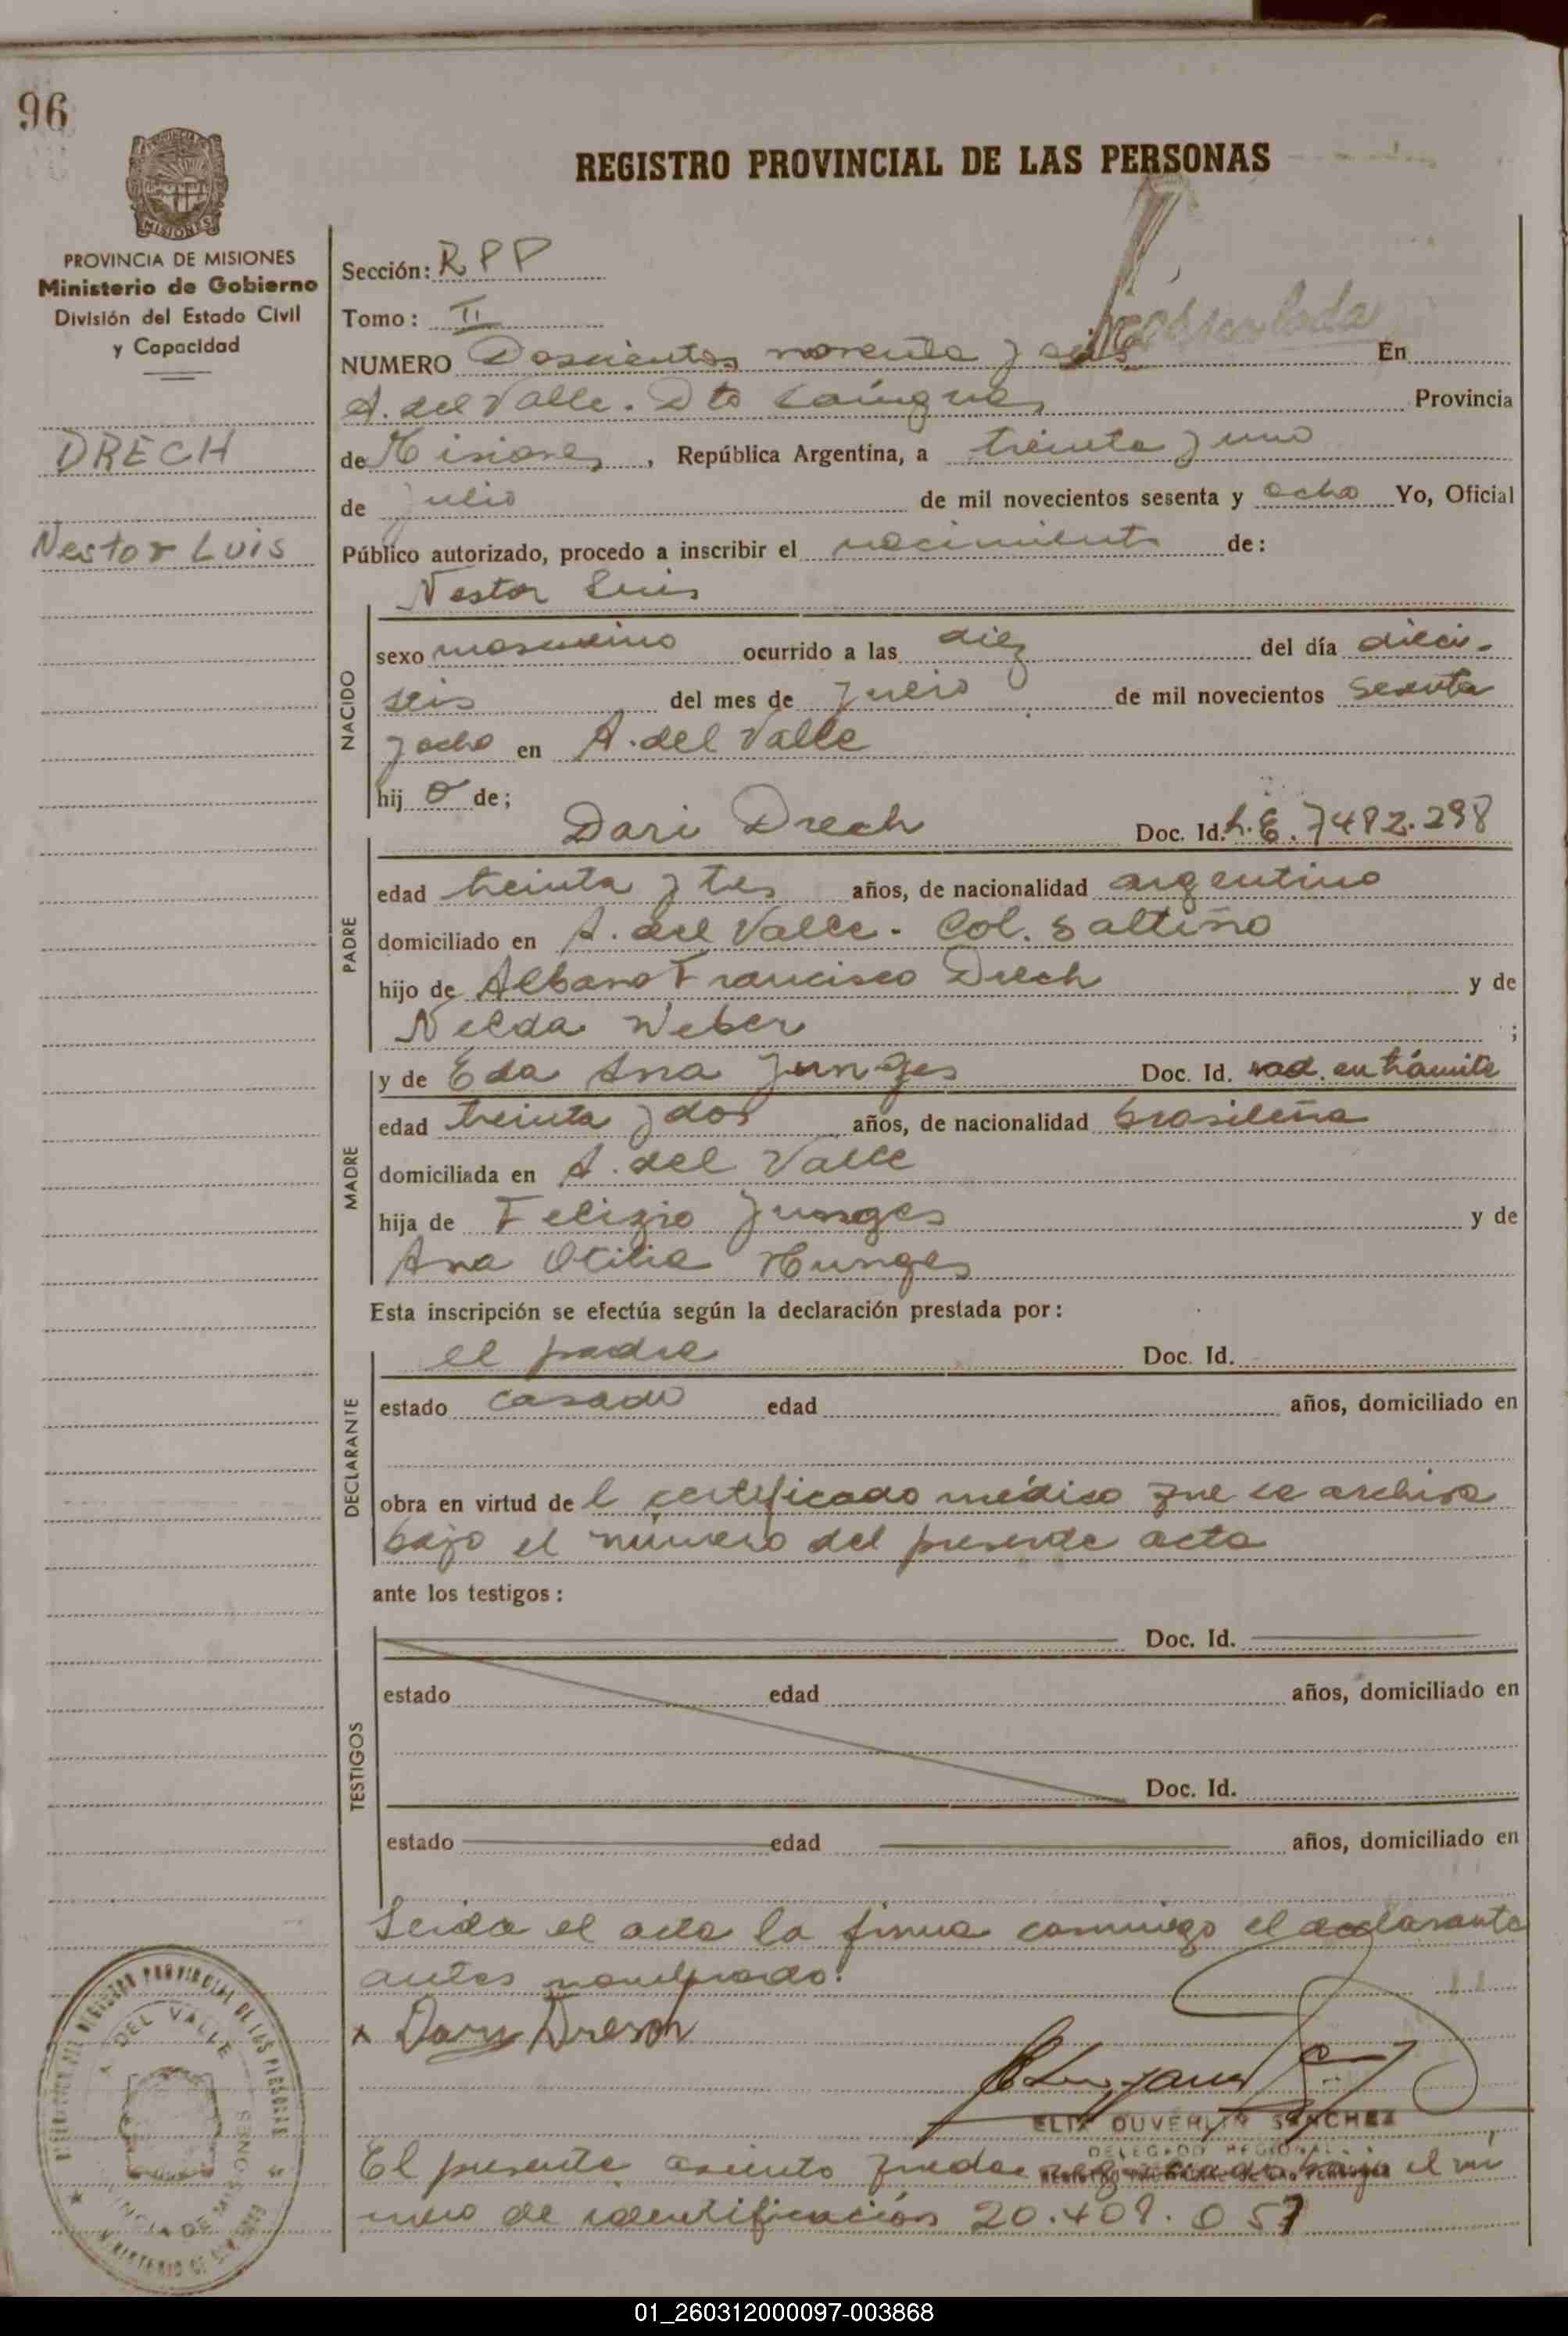 96
REGISTRO PROVINCIAL DE LAS PERSONAS
MISIONES
PROVINCIA DE MISIONES
Ministerio de Gobierno
División del Estado Civil
y Capacidad
DRECH
Nestor Luis
Sección: RPP
Tomo: II
NUMERO Doscientos noventa y seis En
A. del Valle. Dto Cainguas Provincia
de Misiones, República Argentina, a treinta y uno
de julio de mil novecientos sesenta y ocho Yo, Oficial
Público autorizado, procedo a inscribir el nacimiento de:
Nestor Luis
NACIDO
sexo masculino ocurrido a las diez del día dieci-
seis del mes de julio de mil novecientos sesenta
y ocho en A. del Valle
hij o de;
PADRE
Dari Drech Doc. Id. L.E. 7482.298
edad treinta y tres años, de nacionalidad argentino
domiciliado en A. del Valle - Col. Saltiño
hijo de Albano Francisco Drech y de
Nelda Weber ;
MADRE
y de Eda Ana Junges Doc. Id. rad. en trámite
edad treinta y dos años, de nacionalidad brasileña
domiciliada en A. del Valle
hija de Felizio Junges y de
Ana Otilia Hunges
Esta inscripción se efectúa según la declaración prestada por:
DECLARANTE
el padre Doc. Id.
estado casado edad años, domiciliado en
obra en virtud de l certificado médico que se archiva
bajo el número del presente acta
ante los testigos:
TESTIGOS
Doc. Id.
estado edad años, domiciliado en
Doc. Id.
estado edad años, domiciliado en
Leida el acta la firma conmigo el declarante
antes nombrado.
x Dary Dresch
ELIX DUVERLIY SANCHEZ
DELEGADO REGIONAL
El presente asiento queda bajo el nú
mero de identificación 20.408.057
A. DEL VALLE
01_260312000097-003868